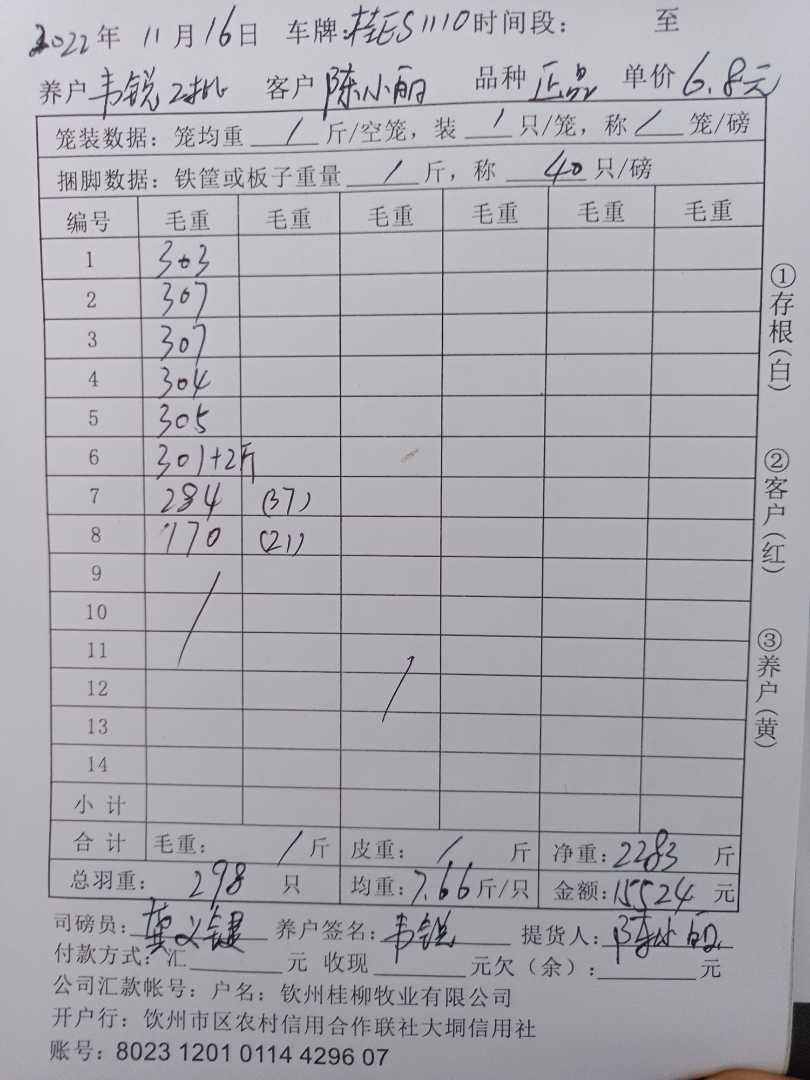 2022年 11月16日 车牌:桂ES1110时间段: 至
养户韦锐2批 客户陈小丽 品种正品 单价6.8元
笼装数据：笼均重 / 斤/空笼，装 / 只/笼，称 / 笼/磅
捆脚数据：铁筐或板子重量 / 斤，称 40 只/磅
编号 毛重 毛重 毛重 毛重 毛重 毛重
1 303
2 307
3 307
4 304
5 305
6 301+2斤
7 284 (37)
8 170 (21)
9
10
11
12
13
14
小计
合计 毛重： / 斤 皮重： / 斤 净重：2283 斤
总羽重： 298 只 均重：7.66斤/只 金额：15524 元
司磅员：龚义键 养户签名：韦锐 提货人：陈小丽
付款方式：汇 元 收现 元欠（余）： 元
公司汇款帐号：户名：钦州桂柳牧业有限公司
开户行：钦州市区农村信用合作联社大垌信用社
账号：8023 1201 0114 4296 07
①存根(白)
②客户(红)
③养户(黄)